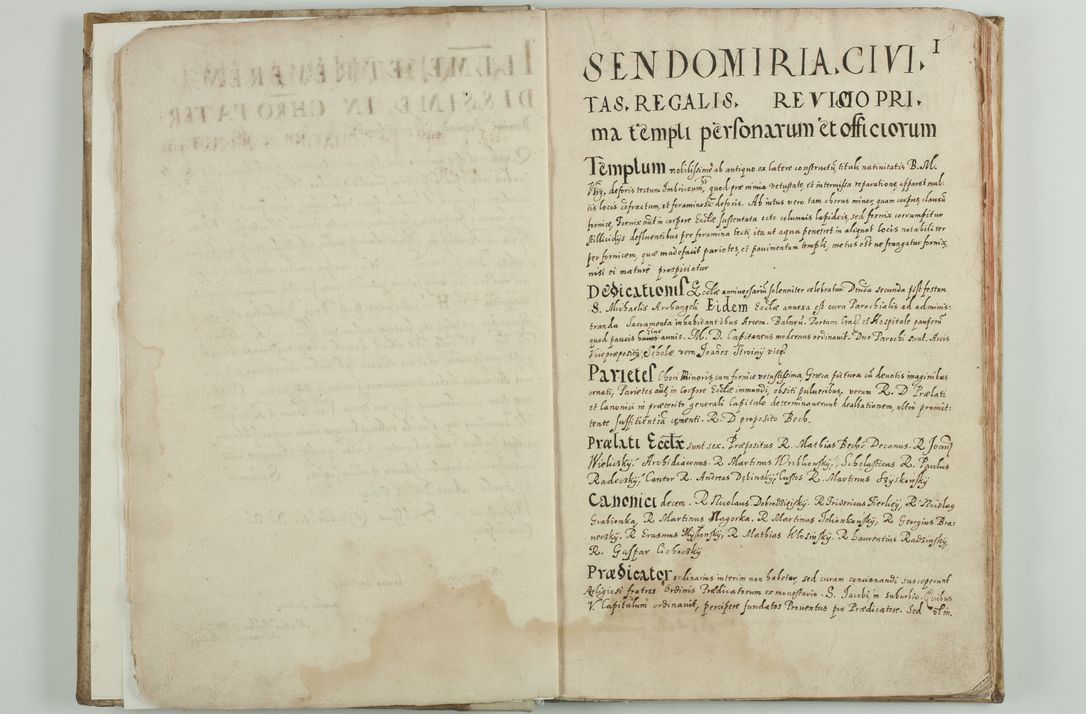 4
I
SENDOMIRIA. CIVI.
TAS. REGALIS. REVISIO PRI.
ma templi personarum et officiorum
Templum nobilissimū ab antiquo ex latere constructū, tituli nativitatis B. M.
Virg, deforis tectum Imbriceum, quod præ nimia vetustate, et intermissa reparatione, apparet mul
tis locis cōfractum, et foraminosū deforis. Ab intus vero tam chorus minor, quam corpus, clausū
fornice, Fornix aūt in corpore Ecclæ sustentata octo columnis lapideis, sed fornix corrumpitur
stillicidijs defluentibus per foramina tecti, ita ut aqua penetret in aliquot locis notabiliter
per fornicem, quæ madefacit parietes, et pavimentum templi, metus est ne frangatur fornix,
nisi ei mature prospiciatur
Dedicationis Ecclæ anniversariū solenniter celebratur Dnīca secunda post festum
S. Michaelis Archangeli Eidem Ecclæ annexa est cura Parochialis ad adminis:
tranda Sacramenta inhabitantibus Arcem. Balneū. Portam Crac. et Hospitale pauperū
quod paucis annis. M. D. Capitaneus modernus ordinavit. Duo Parochi sunt. Arcis
Vicepræpositq, Scholæ vero Joānes
Parietes Chori Minoris, cum fornice vetustissima, Græca pictura cū devotis imaginibus
ornati, Parietes aūt, in corpore Ecclæ immundi, obsiti pulveribus, verum R. D Prælati
et Canonici in præterito generali Capitulo determinaverunt dealbationem, ultro promit:
tente sufficientiā cementi. R. D præposito Bech.
Prælati Eccle sunt sex. Præpositus R. Mathias Bech. Decanus. R. Jacoꝰ
Wieliczky. Archidiaconus. R. Martinus Wrbliowsky, Scholasticus R. Paulus
Radeczky, Cantor R. Andreas Dębinsky, Custos R. Martinus Szyskowsky
Canonici decem. R. Nicolaus Dobrodzieysky. R Fridericus Fierliey, R. Nicolaꝰ
Grabionka, R. Martinus Nagorka. R. Martinus R. Georgius Bra:
neczky. R. Erasmus R. Mathias Wlosinsky. R Laurentius Radzinsky
R. Gaspar Cichoczky
Prædicator ordinarius interim non habetur, sed curam concionandi susceperunt
Religiosi fratres Ordinis Prædicatorum ex monasterio. S. Jacobi in suburbio. Quibus
V. Capitulum ordinavit, percipere fundatos Proventus pro Prædicatore. Sed